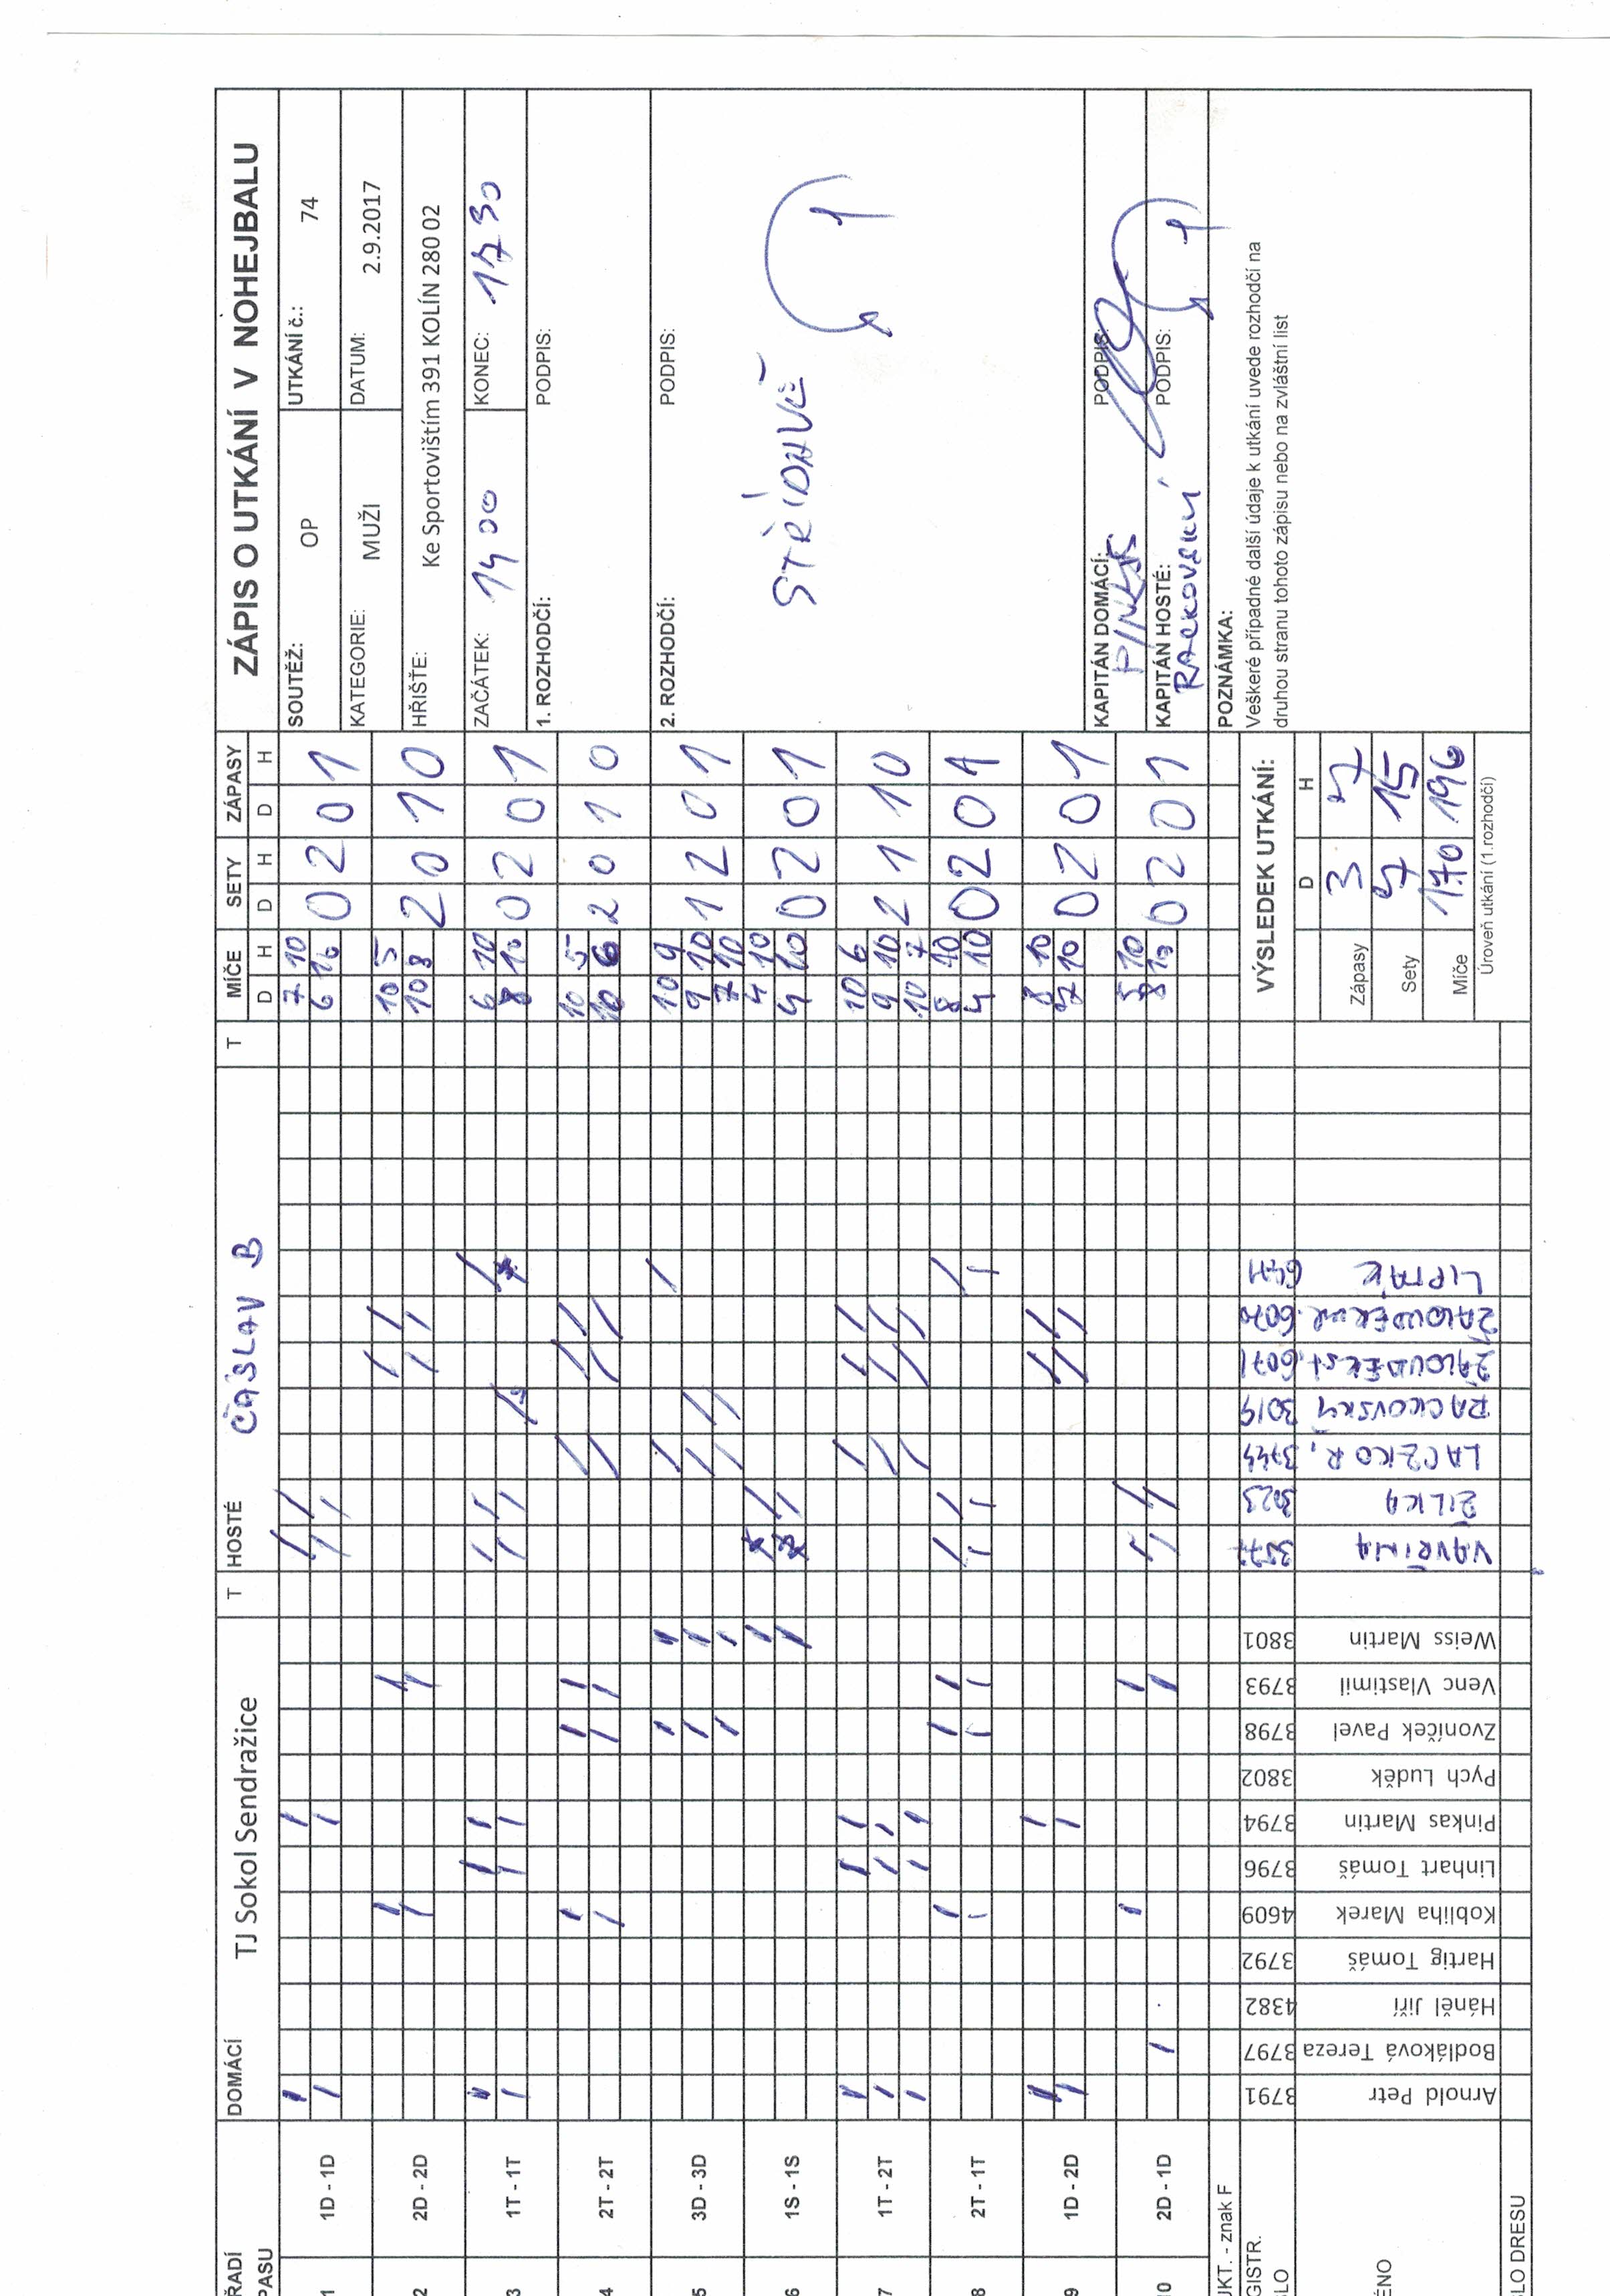 ZÁPIS O UTKÁNÍ V NOHEJBALU
SOUTĚŽ: OP UTKÁNÍ č.: 74
KATEGORIE: MUŽI DATUM: 2.9.2017
HŘIŠTE: Ke Sportovištím 391 KOLÍN 280 02
ZAČÁTEK: 14 00 KONEC: 17 30
1. ROZHODČÍ: PODPIS:
2. ROZHODČÍ: PODPIS:
STŘÍDAVĚ
KAPITÁN DOMÁCÍ: PODPIS:
PINKAS
KAPITÁN HOSTÉ: PODPIS:
RACKOVSKÝ
POZNÁMKA:
Veškeré případné další údaje k utkání uvede rozhodčí na
druhou stranu tohoto zápisu nebo na zvláštní list
ŘADÍ DOMÁCÍ TJ Sokol Sendražice T HOSTÉ ČÁSLAV B T MÍČE SETY ZÁPASY
PASU D H D H D H
1 1D - 1D 7 10 6 10 0 2 0 1
2 2D - 2D 10 5 10 8 2 0 1 0
3 1T - 1T 6 10 8 10 0 2 0 1
4 2T - 2T 10 5 10 6 2 0 1 0
5 3D - 3D 10 9 9 10 7 10 1 2 0 1
6 1S - 1S 4 10 4 10 0 2 0 1
7 1T - 2T 10 6 9 10 10 7 2 1 1 0
8 2T - 1T 8 10 4 10 0 2 0 1
9 1D - 2D 8 10 7 10 0 2 0 1
10 2D - 1D 5 10 8 10 0 2 0 1
UKT. - znak F
GISTR.
LO
3791 3797 4382 3792 4609 3796 3794 3802 3798 3793 3801 3023 3019 6071 6070
ÉNO
Arnold Petr
Bodláková Tereza
Háněl Jiří
Hartig Tomáš
Kobliha Marek
Linhart Tomáš
Pinkas Martin
Pych Luděk
Zvoníček Pavel
Venc Vlastimil
Weiss Martin
VAVŘINA
ŽILKA
LACZKO R.
RACKOVSKÝ
ŽALOUDEK st.
ŽALOUDEK ml.
LIPTÁK
LO DRESU
VÝSLEDEK UTKÁNÍ:
D H
Zápasy 3 7
Sety 7 15
Míče 170 196
Úroveň utkání (1.rozhodčí)